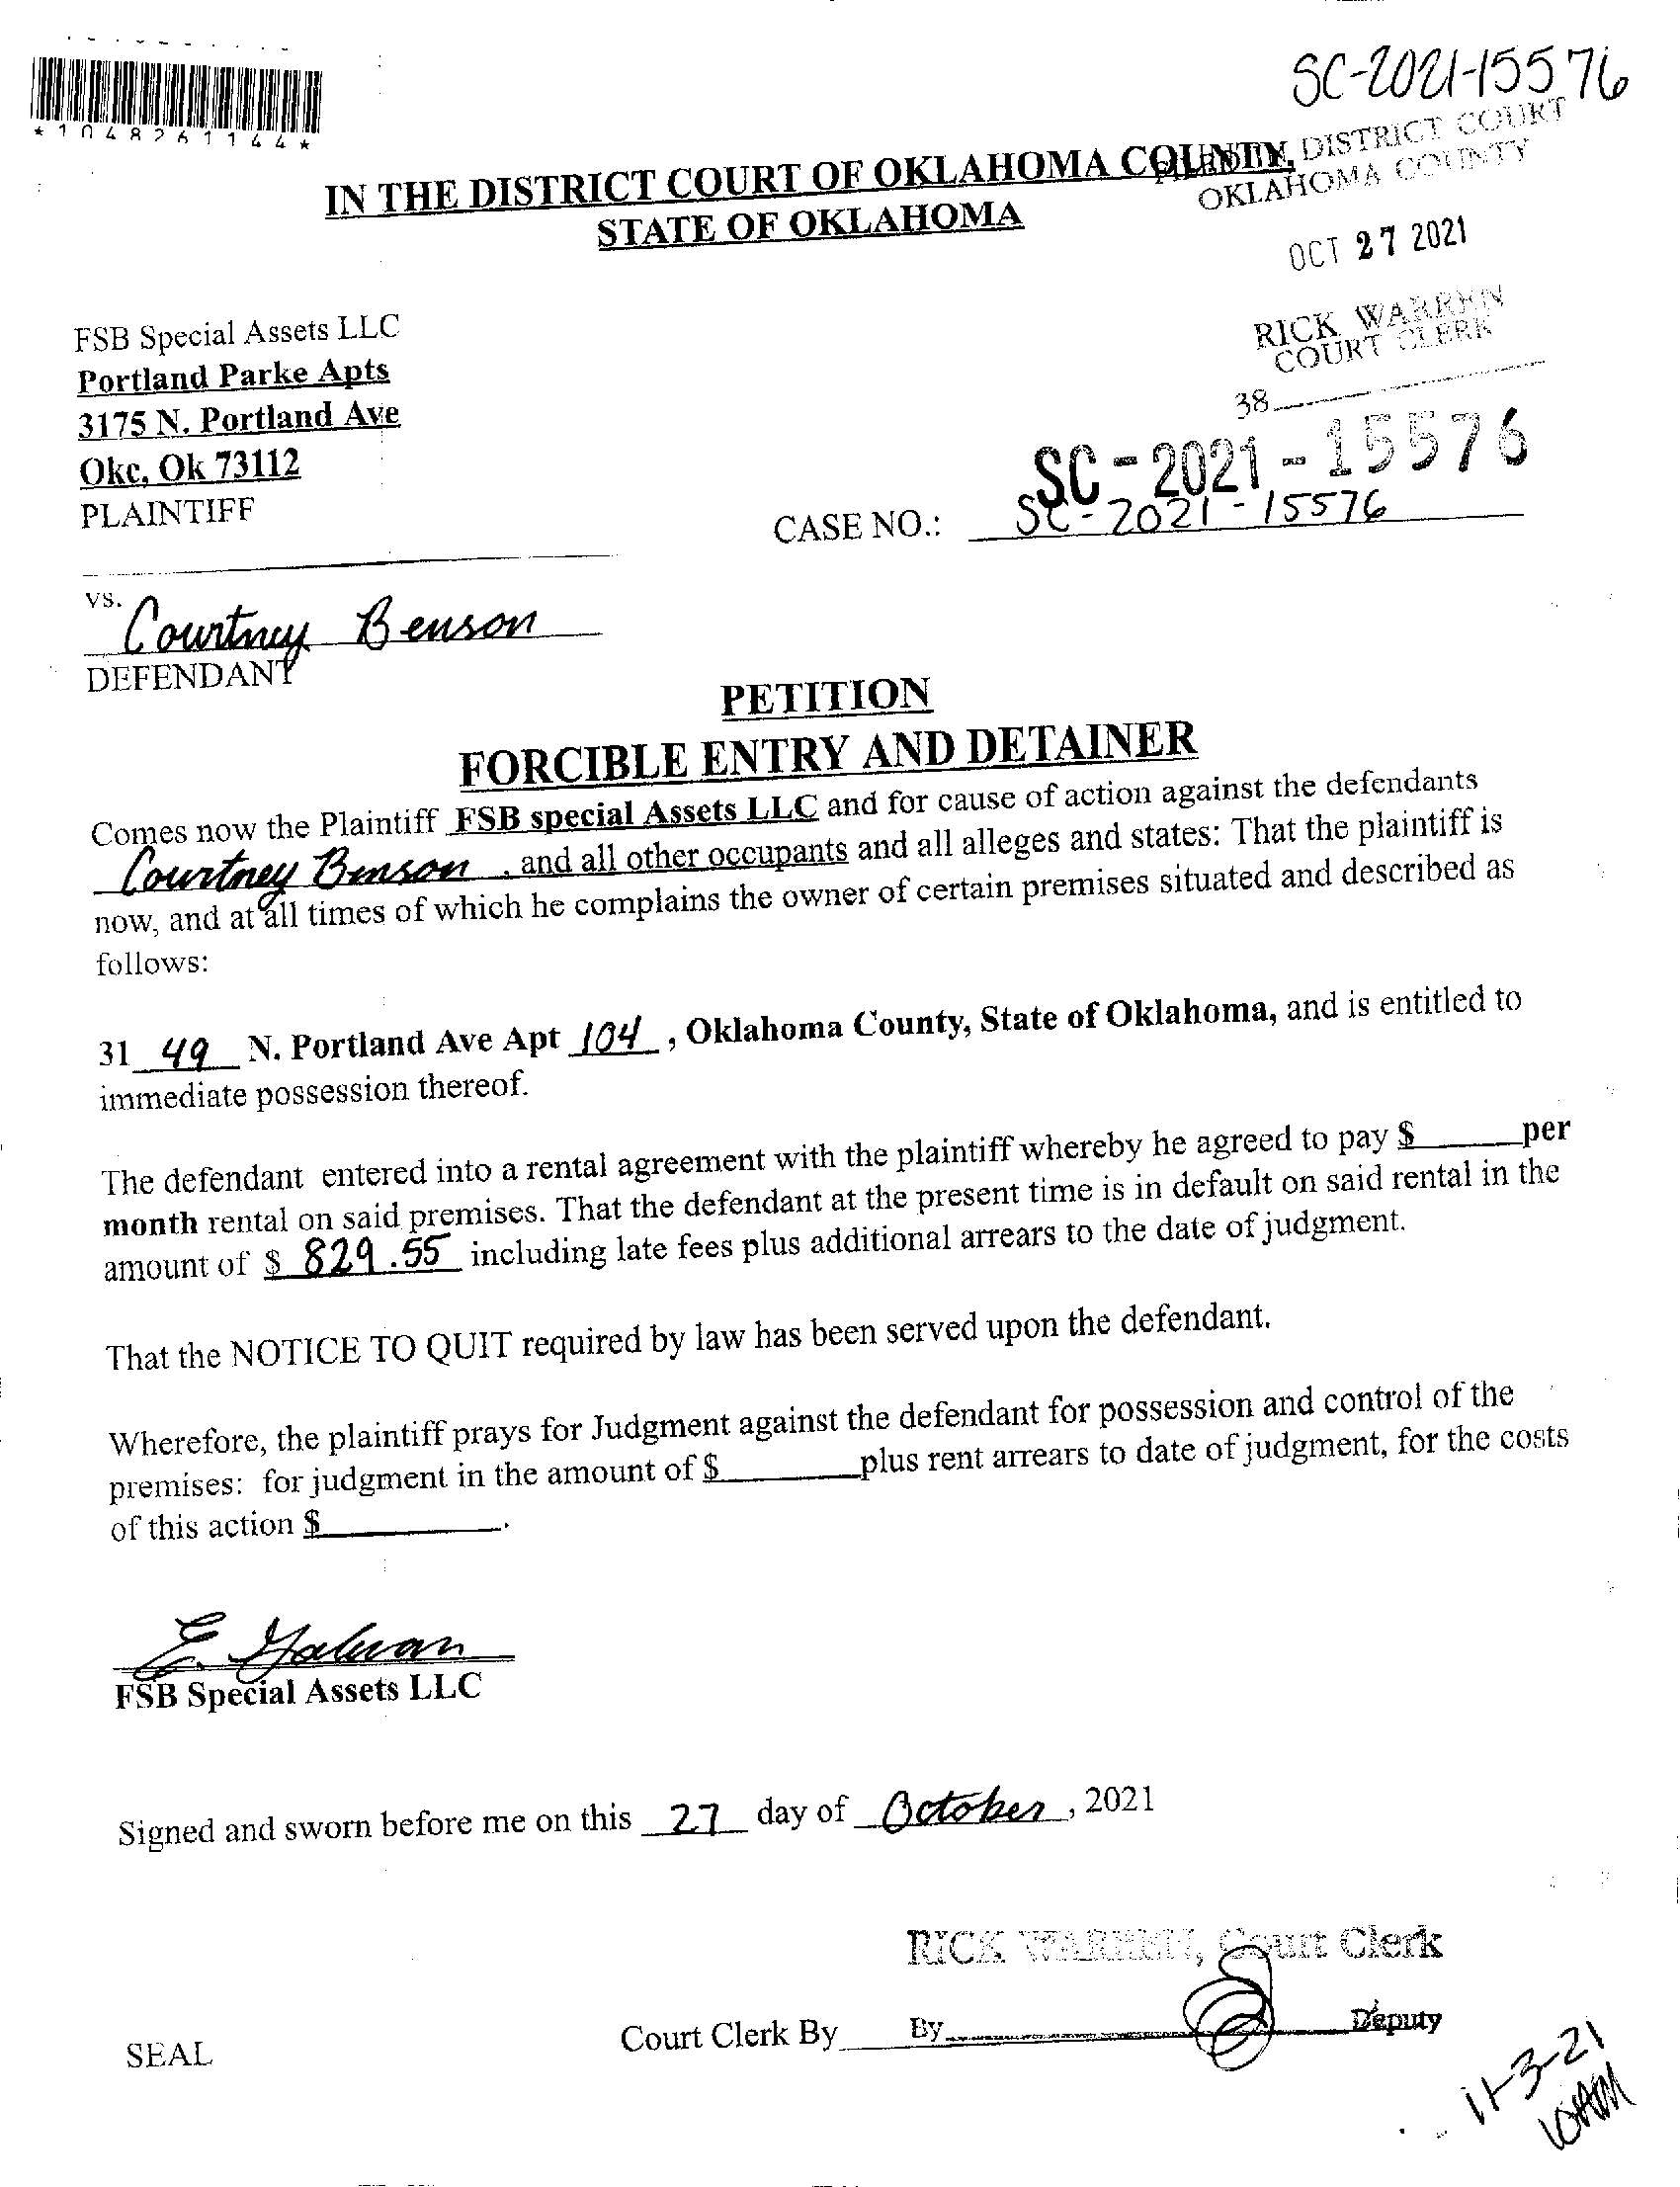 SC-2021-15576
*1048261144*
IN THE DISTRICT COURT OF OKLAHOMA COUNTY,
STATE OF OKLAHOMA
FILED IN DISTRICT COURT
OKLAHOMA COUNTY
OCT 27 2021
RICK WARREN
COURT CLERK
38
FSB Special Assets LLC
Portland Parke Apts
3175 N. Portland Ave
Okc, Ok 73112
PLAINTIFF
SC-2021-15576
CASE NO.: SC-2021-15576
vs.
Courtney Benson
DEFENDANT
PETITION
FORCIBLE ENTRY AND DETAINER
Comes now the Plaintiff FSB special Assets LLC and for cause of action against the defendants
Courtney Benson , and all other occupants and all alleges and states: That the plaintiff is
now, and at all times of which he complains the owner of certain premises situated and described as
follows:
31 49 N. Portland Ave Apt 104 , Oklahoma County, State of Oklahoma, and is entitled to
immediate possession thereof.
The defendant entered into a rental agreement with the plaintiff whereby he agreed to pay $______per
month rental on said premises. That the defendant at the present time is in default on said rental in the
amount of $ 829.55 including late fees plus additional arrears to the date of judgment.
That the NOTICE TO QUIT required by law has been served upon the defendant.
Wherefore, the plaintiff prays for Judgment against the defendant for possession and control of the
premises: for judgment in the amount of $________plus rent arrears to date of judgment, for the costs
of this action $__________.
E. Galvan
FSB Special Assets LLC
Signed and sworn before me on this 27 day of October, 2021
RICK WARREN, Court Clerk
Court Clerk By By Deputy
SEAL
11-3-21
10AM